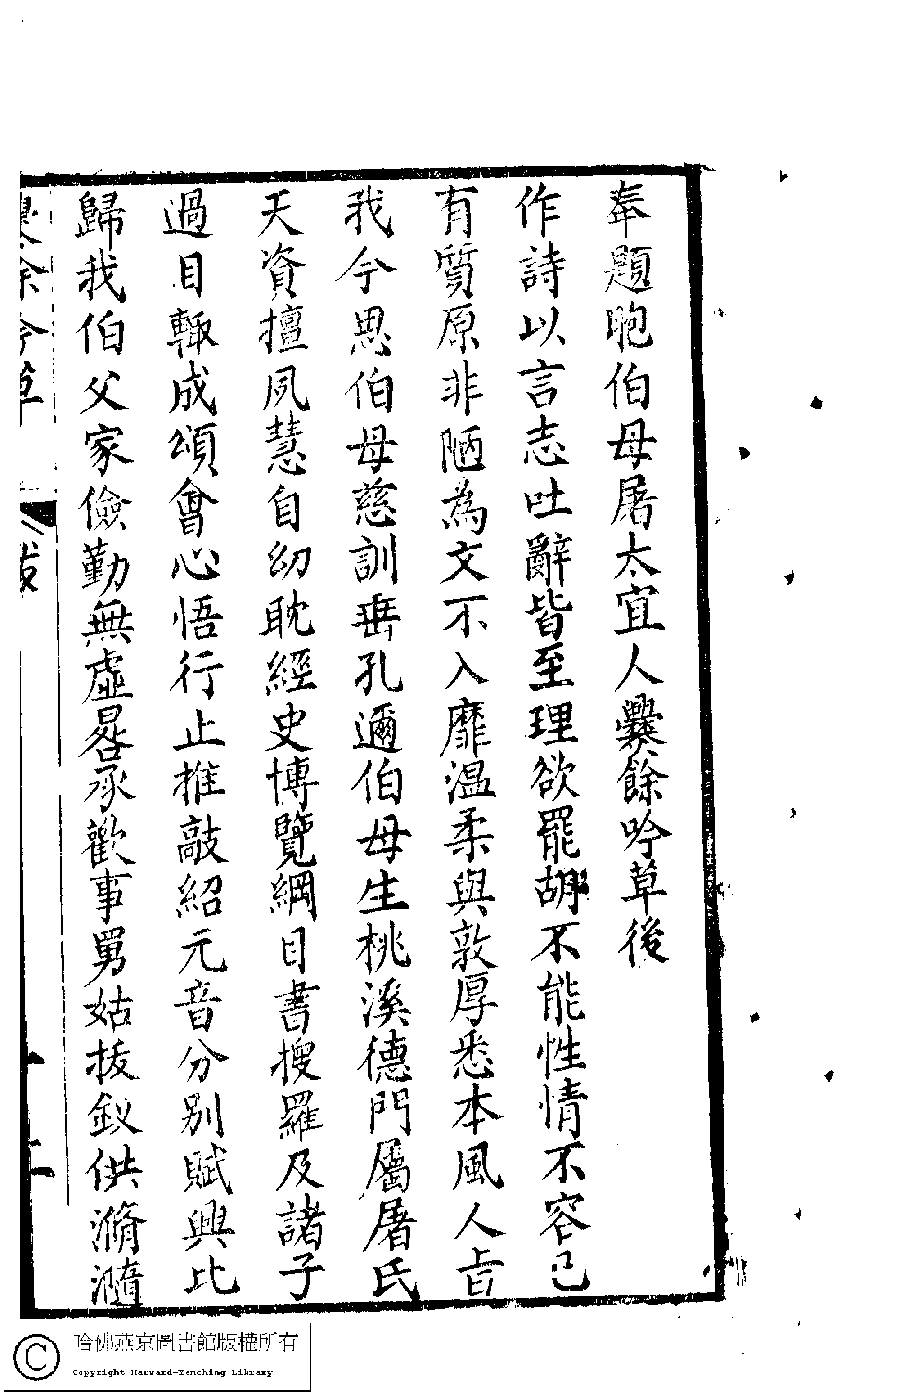 奉題晚伯母屠太宜人爨餘吟草後
作詩以言志吐辭皆至理欲罷胡不能性情不容已
有質原非陋為文不入靡溫柔與敦厚悉本風人旨
我今思伯母慈訓垂孔邇伯母生桃溪德門屬屠氏
天資擅夙慧自幼耽經史博覽綱目書搜羅及諸子
過目輒成頌會心悟行止推敲紹元音分別賦興比
歸我伯父家儉勤無虛晷承歡事舅姑拔釵供滫瀡
爨餘吟草
跋
哈佛燕京圖書館版權所有
Copyright Harvard-Yenching Library